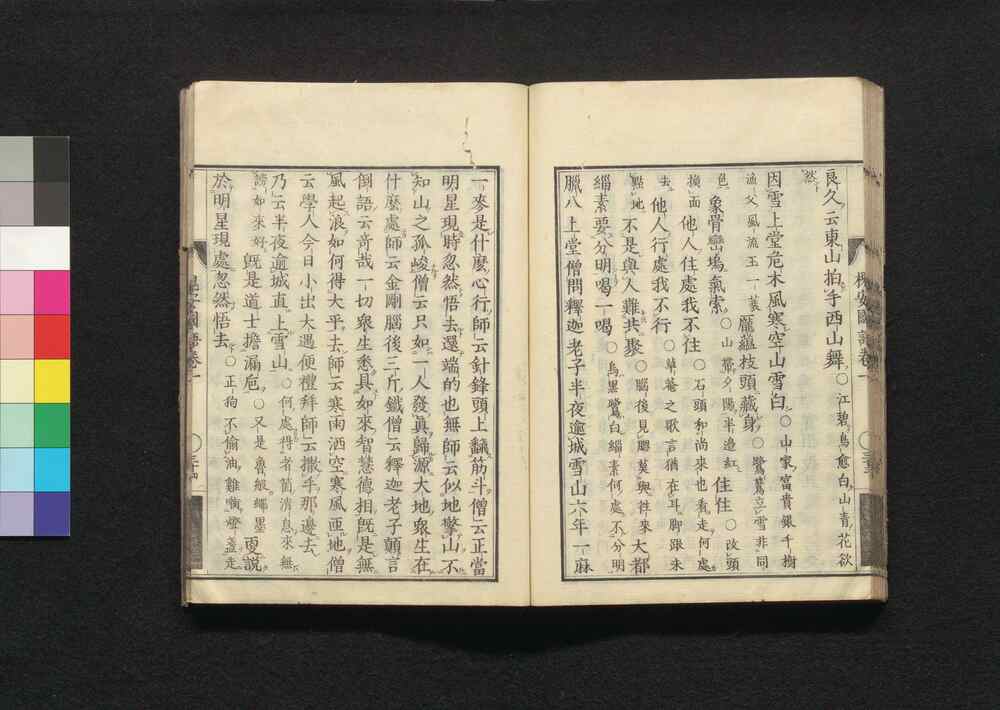 良久云東山拍手西山舞○江碧鳥愈白山青花欲
然
因雪上堂危木風寒空山雪白○山家富貴銀千樹
漁父風流玉一蓑 龐蘊枝頭藏身○鷺鷥立雪非同
色 象骨巒塢氣索○山 夕陽半邊紅 住住○改頭
換面 他人住處我不住○石頭和尚來也看走何處
去 他人行處我不行○草菴之歌言猶在耳脚跟未
點地 不是與人難共聚○腦後見腮莫與往來 大都
緇素要分明喝一喝○烏黑鷺白緇素何處不分明
臘八上堂僧問釋迦老子半夜逾城雪山六年一麻
一麥是什麼心行師云針鋒頭上翻筋斗僧云正當
明星現時忽然悟去還端的也無師云似地擎山不
知山之孤峻僧云只如一人發真歸源大地衆生在
什麼處師云金剛腦後三斤鐵僧云釋迦老子顛言
倒語云奇哉一切衆生悉具如來智慧德相既是無
風起浪如何得大平去師云寒雨洒空寒風匝地僧
云學人今日小出大遇便禮拜師云撒手那邊去
乃云半夜逾城直上雪山○何處得者箇消息來無
謗如來好 既是道士擔漏巵○又是魯般繩墨 更說
於明星現處忽然悟去○正狗不偸油雞 燈盞走